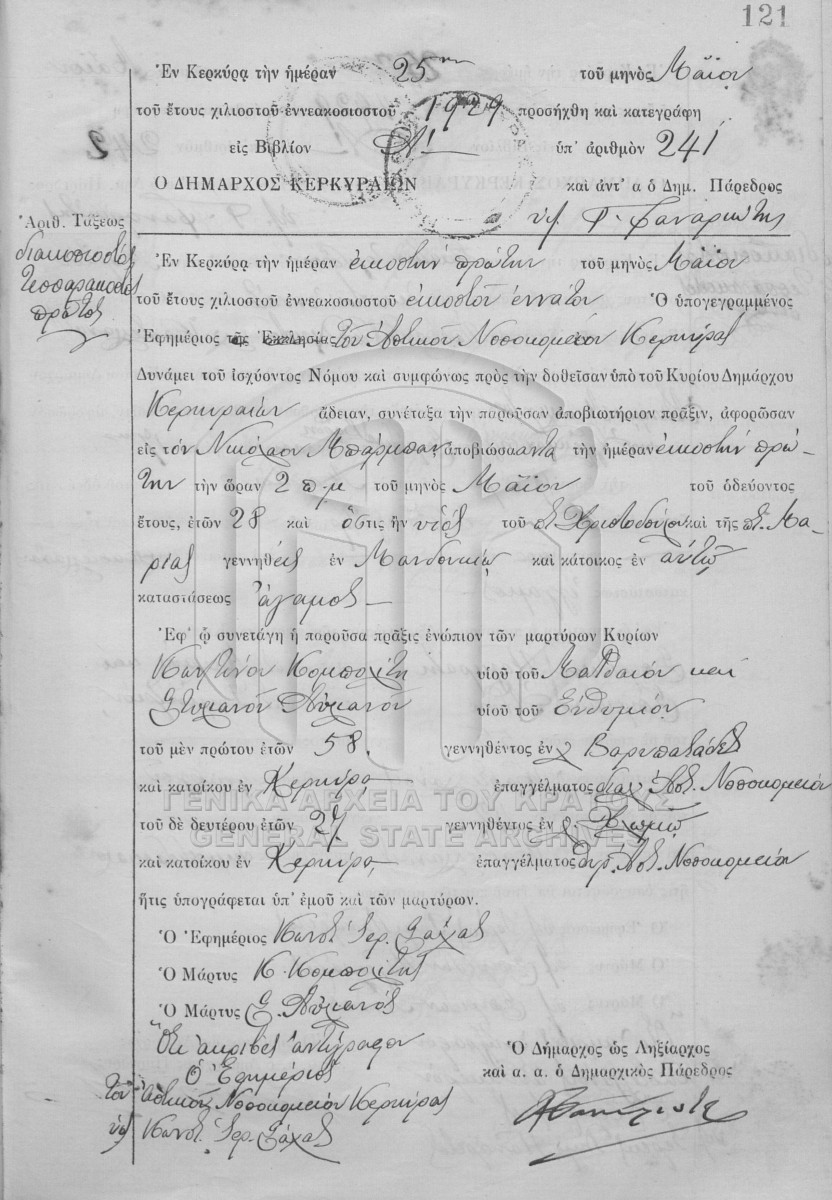 121
Ἐν Κερκύρᾳ τὴν ἡμέραν 25ην τοῦ μηνὸς Μαΐου
τοῦ ἔτους χιλιοστοῦ ἐννεακοσιοστοῦ 1929 προσήχθη καὶ κατεγράφη
εἰς Βιβλίον Α′ ὑπ' ἀριθμὸν 241
Ο ΔΗΜΑΡΧΟΣ ΚΕΡΚΥΡΑΙΩΝ καὶ ἀντ' α ὁ Δημ. Πάρεδρος
Ἀριθ. Τάξεως
διακοσιοστὸς
τεσσαρακοστὸς
πρῶτος
Ἐν Κερκύρᾳ τὴν ἡμέραν εἰκοστὴν πρώτην τοῦ μηνὸς Μαΐου
τοῦ ἔτους χιλιοστοῦ ἐννεακοσιοστοῦ εἰκοστοῦ ἐννάτου Ὁ ὑπογεγραμμένος
Ἐφημέριος τῆς Ἐκκλησίας τοῦ Ἀστικοῦ Νοσοκομείου Κερκύρας
Δυνάμει τοῦ ἰσχύοντος Νόμου καὶ συμφώνως πρὸς τὴν δοθεῖσαν ὑπὸ τοῦ Κυρίου Δημάρχου
Κερκυραίων ἄδειαν, συνέταξα τὴν παροῦσαν ἀποβιωτήριον πρᾶξιν, ἀφορῶσαν
εἰς τόν Νικόλαον Μπάρμπαν ἀποβιώσαντα τὴν ἡμέραν εἰκοστὴν πρώ-
την τὴν ὥραν 2 π.μ τοῦ μηνὸς Μαΐου τοῦ ὁδεύοντος
ἔτους, ἐτῶν 28 καὶ ὅστις ἦν υἱὸς τοῦ Χριστοδούλου καὶ τῆς Μα-
ρίας γεννηθεὶς ἐν Μανδουκίῳ καὶ κάτοικος ἐν αὐτῷ
καταστάσεως ἄγαμος
Ἐφ' ᾧ συνετάγη ἡ παροῦσα πρᾶξις ἐνώπιον τῶν μαρτύρων Κυρίων
Κων/τίνου Κομπολίτη υἱοῦ τοῦ Ματθαίου καὶ
Στυλιανοῦ υἱοῦ τοῦ Εὐθυμίου
τοῦ μὲν πρώτου ἐτῶν 58. γεννηθέντος ἐν Βαρυπατάδες
καὶ κατοίκου ἐν Κέρκυρᾳ ἐπαγγέλματος Ἀστ. Νοσοκομείου
τοῦ δὲ δευτέρου ἐτῶν 27 γεννηθέντος ἐν
καὶ κατοίκου ἐν Κέρκυρᾳ ἐπαγγέλματος θυρ. Ἀστ. Νοσοκομείου
ἥτις ὑπογράφεται ὑπ' ἐμοῦ καὶ τῶν μαρτύρων.
Ὁ Ἐφημέριος Κωνστ. Ἱερ.
Ὁ Μάρτυς Κ. Κομπολίτης
Ὁ Μάρτυς Σ.
Ὅτι ἀκριβὲς ἀντίγραφον
Ὁ Ἐφημέριος
τοῦ Ἀστικοῦ Νοσοκομείου Κερκύρας
Κωνστ. Ἱερ.
Ὁ Δήμαρχος ὡς Ληξίαρχος
καὶ α. α. ὁ Δημαρχικὸς Πάρεδρος
ΓΕΝΙΚΑ ΑΡΧΕΙΑ ΤΟΥ ΚΡΑΤΟΥΣ
GENERAL STATE ARCHIVES